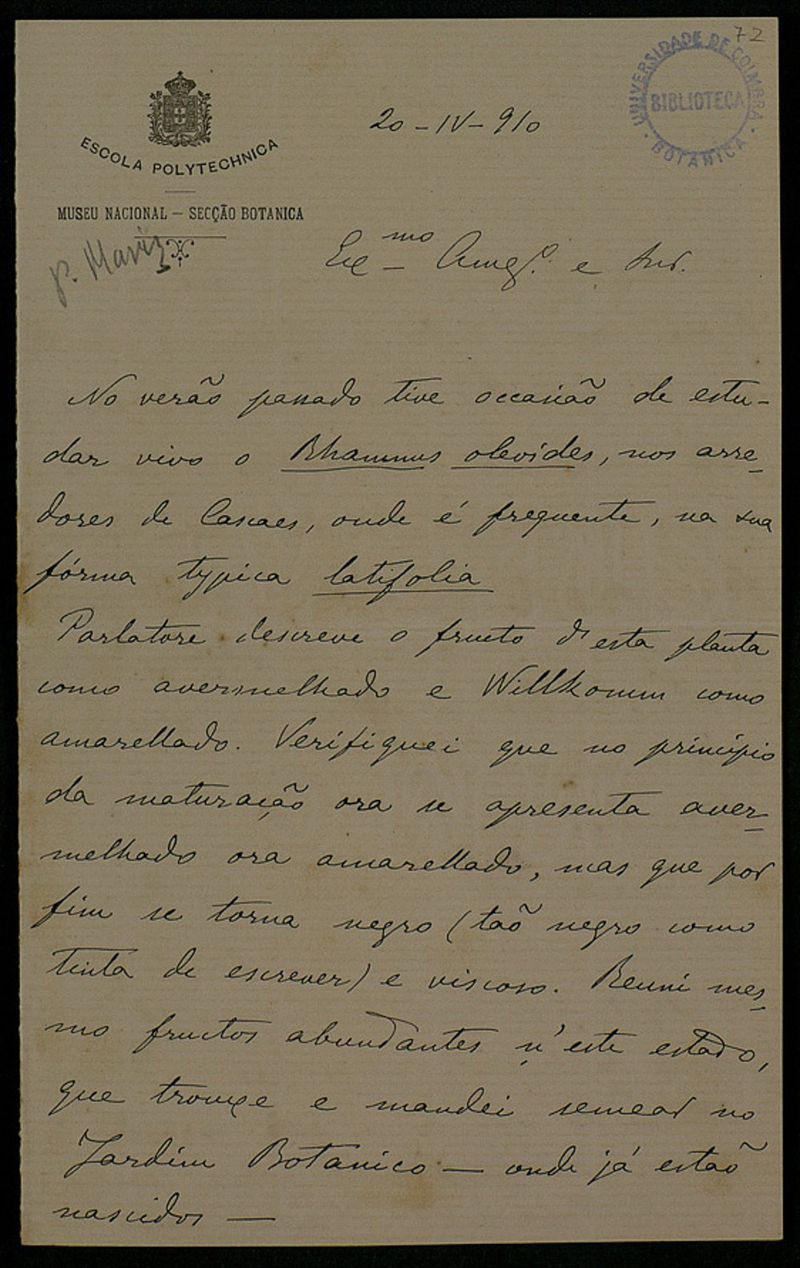 72
UNIVERSIDADE DE COIMBRA
BIBLIOTECA
BOTANICA
ESCOLA POLYTECHNICA
MUSEU NACIONAL — SECÇÃO BOTANICA
pª. Mariz
20-IV-910
Exmo Amgº. e Snr.
No verão passado tive occasião de estu-
dar vivo o Rhamnus oleoides, nos arre-
dores de Cascaes, onde é frequente, na sua
fórma typica latifolia
Parlatore descreve o fructo d'esta planta
como avermelhado e Willkomm como
amarellado. Verifiquei que no principio
da maturação ora se apresenta aver-
melhado ora amarellado, mas que por
fim se torna negro (taõ negro como
tinta de escrever) e viscoso. Reuni mes-
mo fructos abundantes n'este estado,
que trouxe e mandei semear no
Jardim Botanico — onde já estaõ
nascidos —